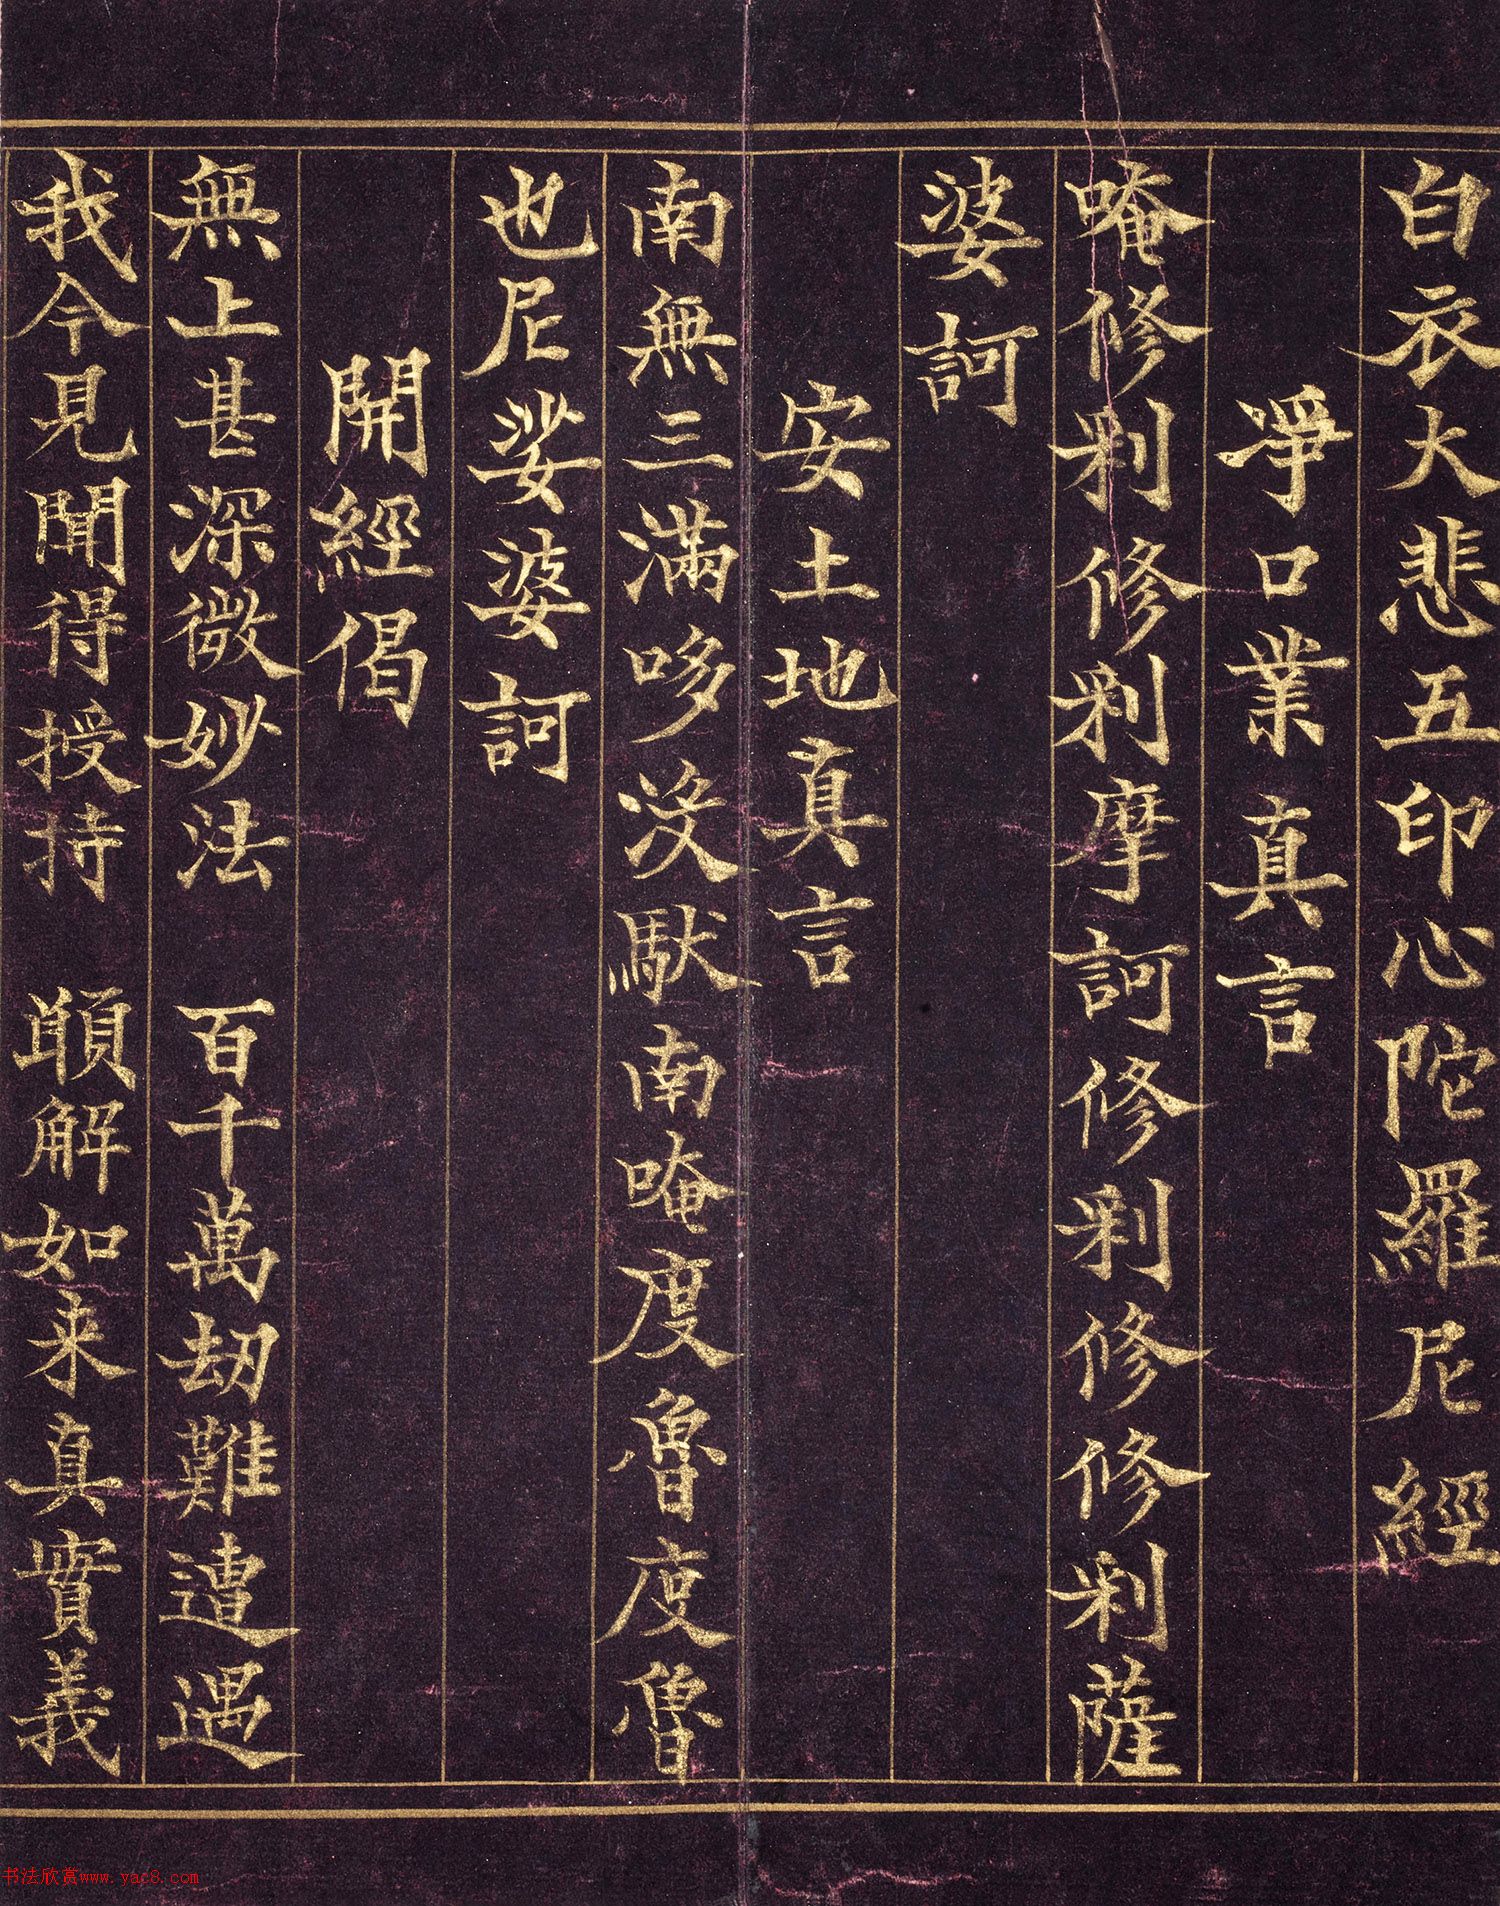 白衣大悲五印心陀羅尼經
淨口業真言
唵修利修利摩訶修利修修利薩
婆訶
安土地真言
南無三滿哆沒馱南唵度魯度魯
地尾娑婆訶
開經偈
無上甚深微妙法 百千萬劫難遭遇
我今見聞得授持 願解如来真實義
书法欣赏www.yac8.com